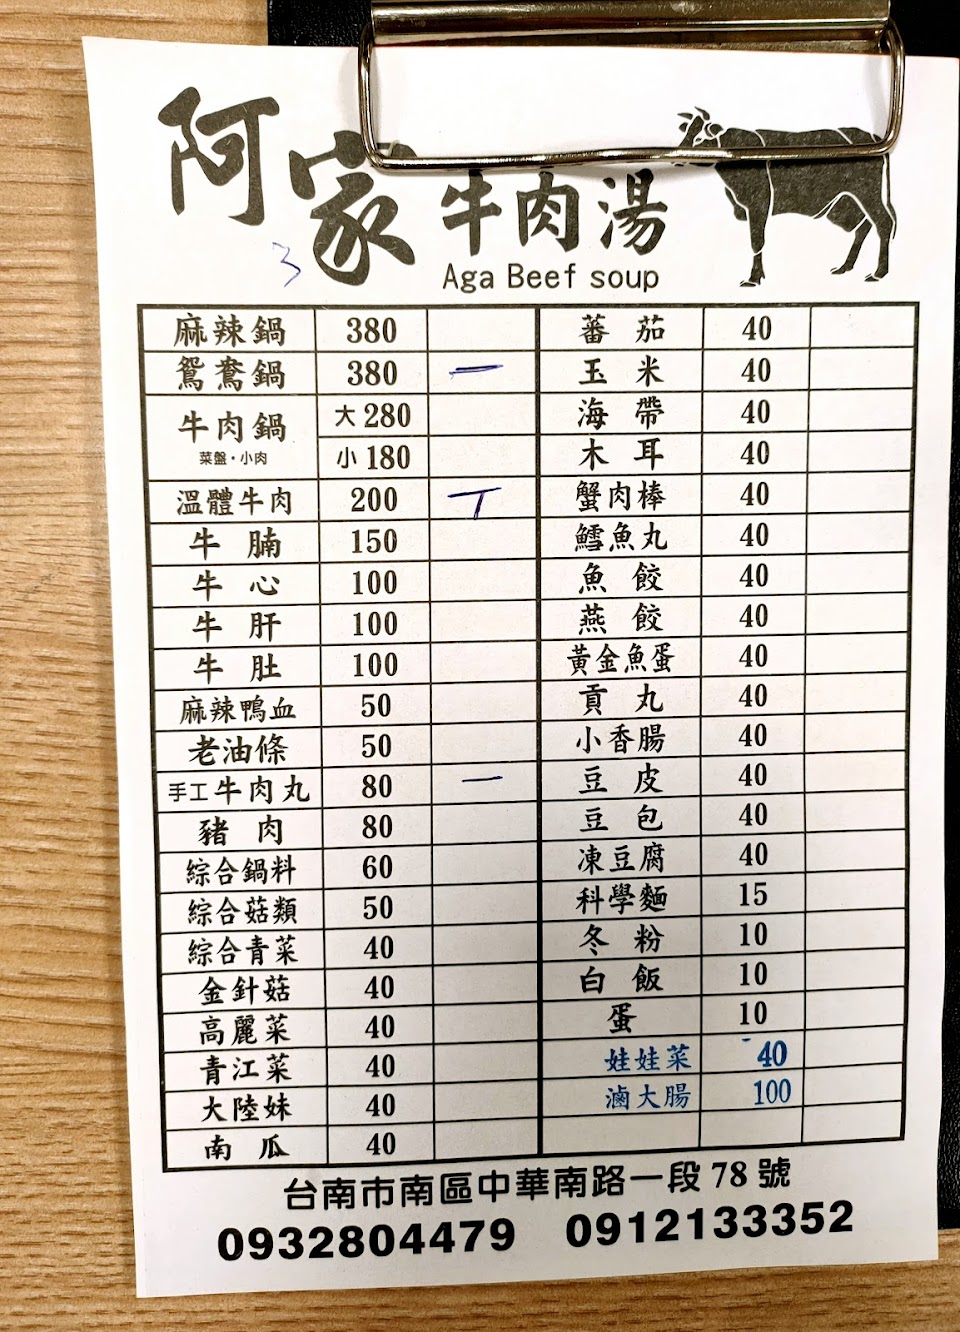 阿家牛肉湯
Aga Beef soup
3
麻辣鍋 380 蕃茄 40
鴛鴦鍋 380 一 玉米 40
牛肉鍋 大 280 海帶 40
菜盤·小肉 小 180 木耳 40
溫體牛肉 200 丅 蟹肉棒 40
牛腩 150 鱈魚丸 40
牛心 100 魚餃 40
牛肝 100 燕餃 40
牛肚 100 黃金魚蛋 40
麻辣鴨血 50 貢丸 40
老油條 50 小香腸 40
手工牛肉丸 80 一 豆皮 40
豬肉 80 豆包 40
綜合鍋料 60 凍豆腐 40
綜合菇類 50 科學麵 15
綜合青菜 40 冬粉 10
金針菇 40 白飯 10
高麗菜 40 蛋 10
青江菜 40 娃娃菜 40
大陸妹 40 滷大腸 100
南瓜 40
台南市南區中華南路一段 78 號
0932804479 0912133352